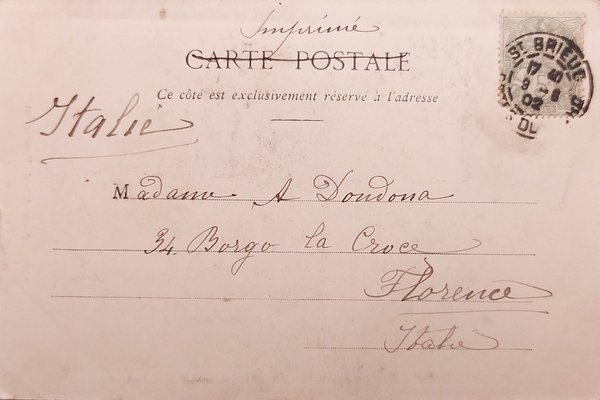 Imprimé
CARTE POSTALE
Ce côté est exclusivement réservé à l'adresse
Italie
Madame A Doudona
34. Borgo la Croce
Florence
Italie
ST BRIEUC
17 40
9 - 8
02
DU